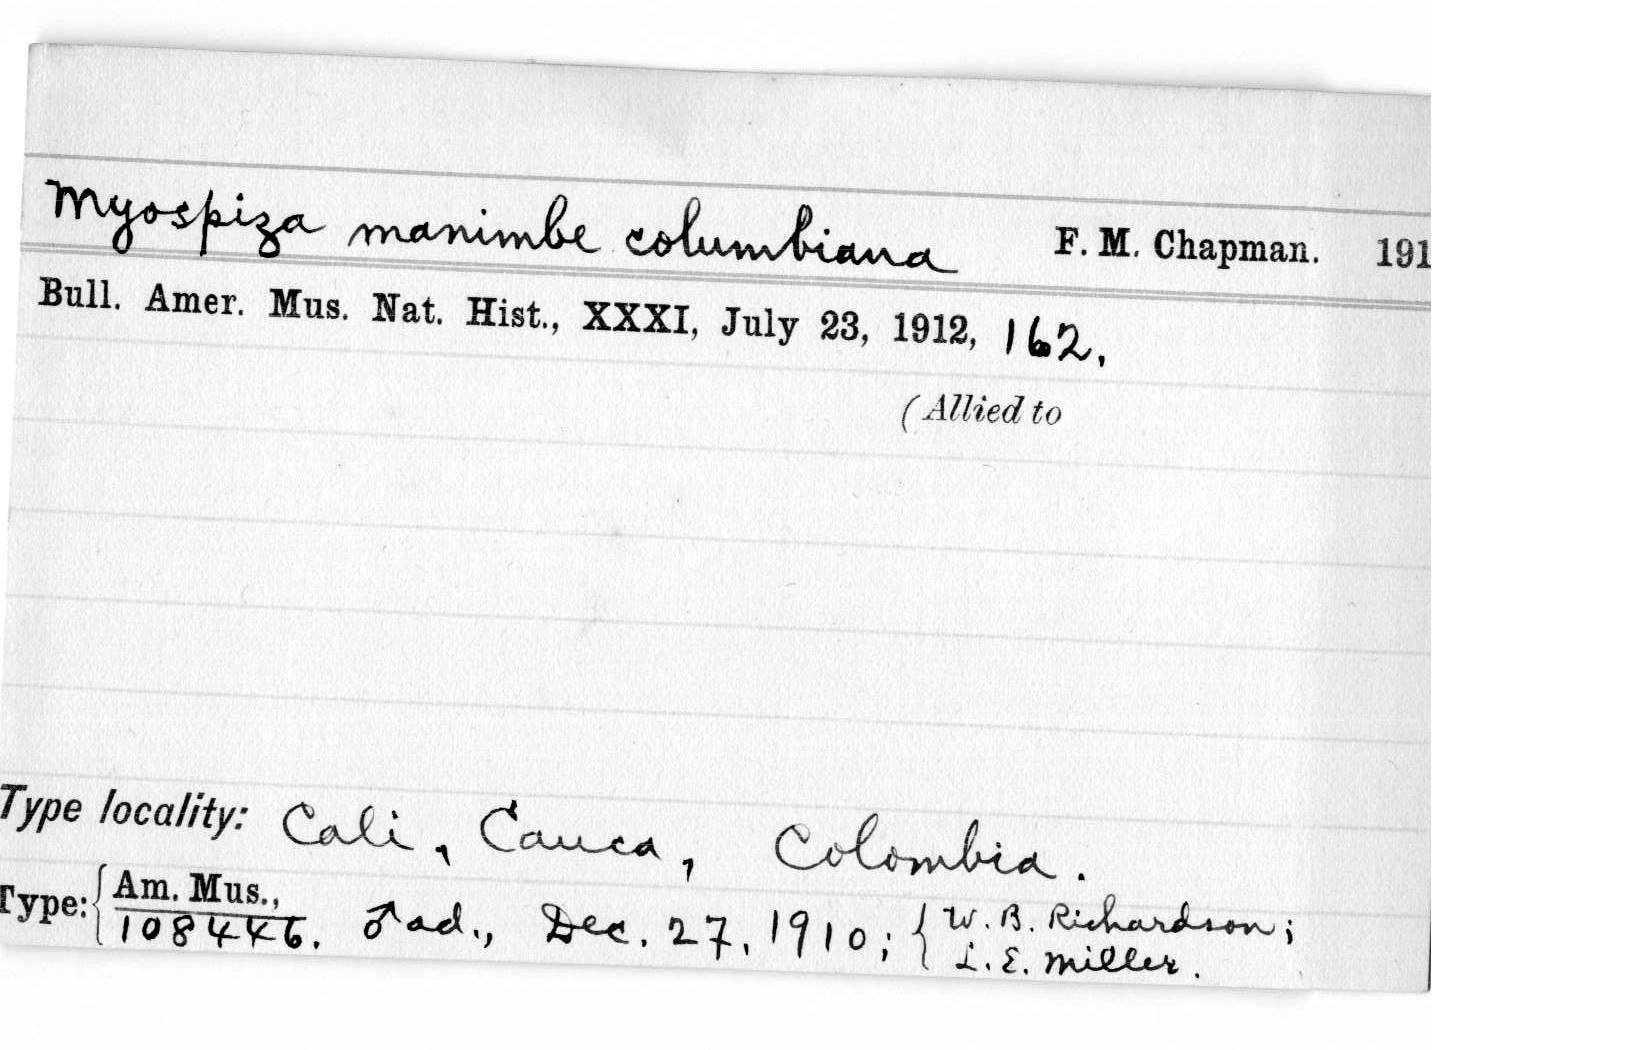 Myospiza manimbe columbiana F. M. Chapman. 191
Bull. Amer. Mus. Nat. Hist., XXXI, July 23, 1912, 162.
(Allied to
Type locality: Cali, Cauca, Colombia.
Type: { Am. Mus.,
108446. ♂ ad., Dec. 27, 1910; { W. B. Richardson;
L. E. Miller.